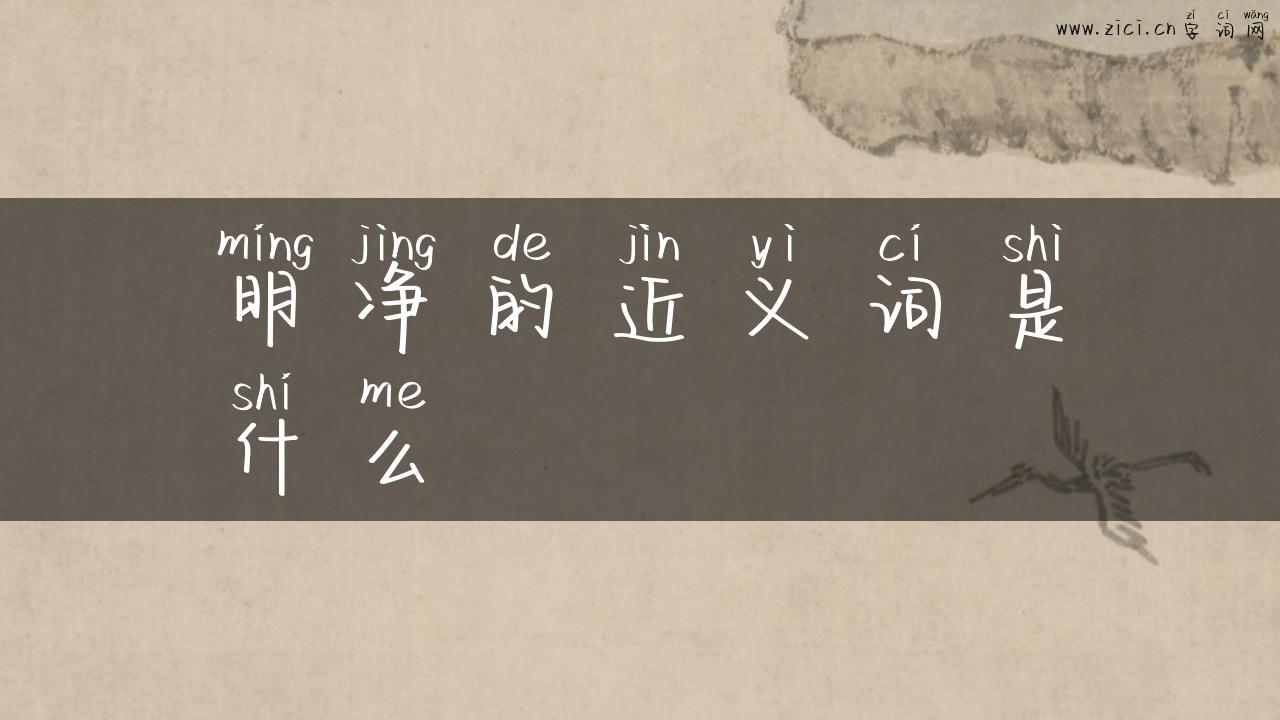 zì cí wǎng
www.zici.cn 字词网
míng jìng de jìn yì cí shì
明净的近义词是
shí me
什么